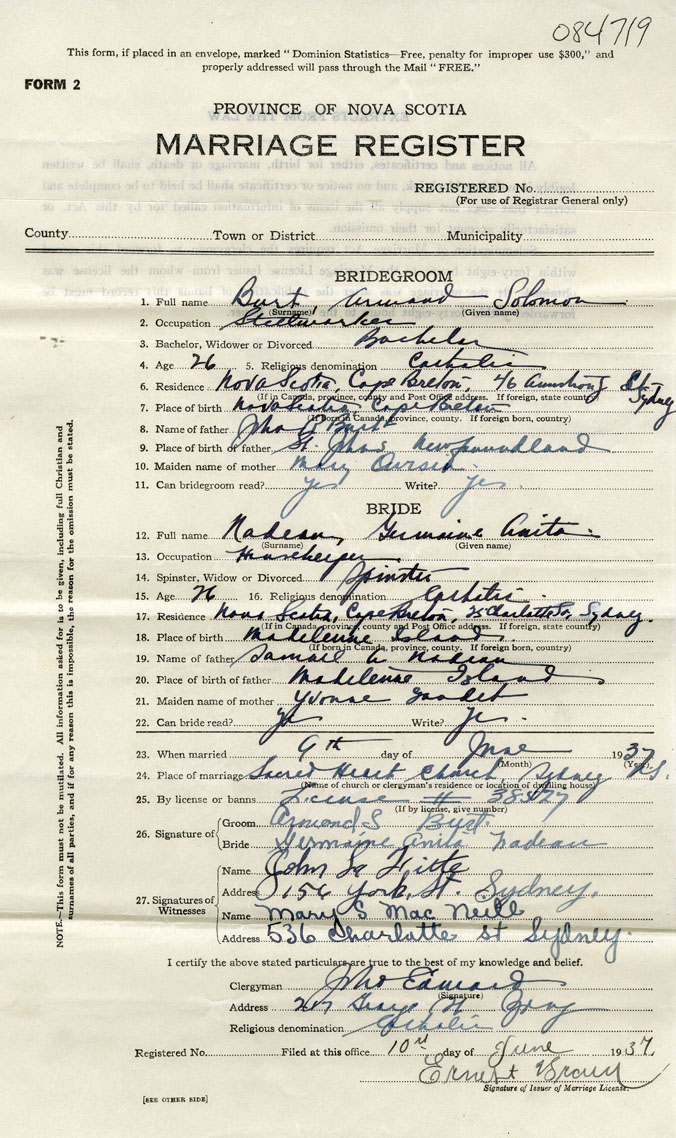 084719
This form, if placed in an envelope, marked "Dominion Statistics—Free, penalty for improper use $300," and
properly addressed will pass through the Mail "FREE."
FORM 2
PROVINCE OF NOVA SCOTIA
MARRIAGE REGISTER
REGISTERED No.
(For use of Registrar General only)
County Town or District Municipality
BRIDEGROOM
1. Full name Burt, Armand Solomon
(Surname) (Given name)
2. Occupation Steelworker
3. Bachelor, Widower or Divorced Bachelor
4. Age 26 5. Religious denomination Catholic
6. Residence Nova Scotia, Cape Breton 46 Armstrong St. Sydney
(If in Canada, province, county and Post Office address. If foreign, state county)
7. Place of birth Nova Scotia, Cape Breton
(If born in Canada, province, county. If foreign born, country)
8. Name of father Burt
9. Place of birth of father St. Johns Newfoundland
10. Maiden name of mother Mary
11. Can bridegroom read? yes Write? yes.
BRIDE
12. Full name Nadeau, Germaine Anita
(Surname) (Given name)
13. Occupation Housekeeper
14. Spinster, Widow or Divorced Spinster
15. Age 26 16. Religious denomination Catholic
17. Residence Nova Scotia, Cape Breton, Charlotte St, Sydney.
(If in Canada, province, county and Post Office address. If foreign, state county)
18. Place of birth Madeleine Island
(If born in Canada, province, county. If foreign born, country)
19. Name of father Samuel A. Nadeau
20. Place of birth of father Madeleine Island
21. Maiden name of mother Yvonne
22. Can bride read? yes Write? yes.
23. When married 9th day of June 1937
(Month) (Year)
24. Place of marriage Sacred Heart Church, Sydney N.S.
(Name of church or clergyman's residence or location of dwelling house)
25. By license or banns License #
(If by license, give number)
26. Signature of
Groom Armond S Burt.
Bride Germaine Anita Nadeau
27. Signatures of Witnesses
Name John La Fitte
Address 154 York St. Sydney.
Name Mary S Mac Neill
Address 536 Charlotte st Sydney.
I certify the above stated particulars are true to the best of my knowledge and belief.
Clergyman
(Signature)
Address George St
Religious denomination Catholic
Registered No. Filed at this office 10th day of June 1937.
Ernest Brown
Signature of Issuer of Marriage License.
[SEE OTHER SIDE]
NOTE.—This form must not be mutilated. All information asked for is to be given, including full Christian and
surnames of all parties, and if for any reason this is impossible, the reason for the omission must be stated.